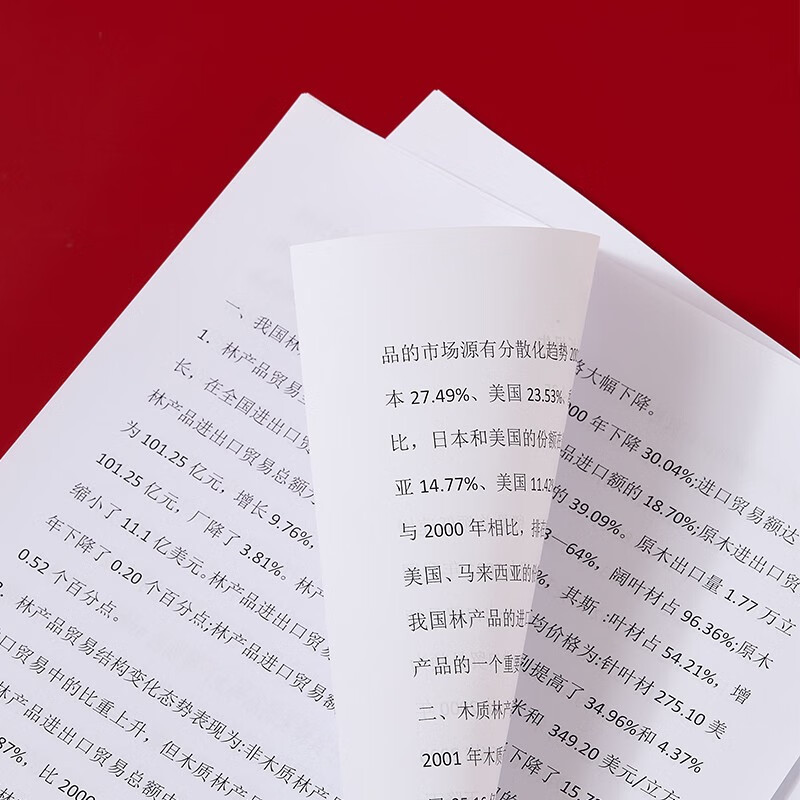 一、我国林
1. 林产品贸易
长，在全国进出口贸
林产品进出口贸易总额
为 101.25 亿元，增长 9.76%，
101.25 亿元，厂降了 3.81%。林
缩小了 11.1 亿美元。林产品进出口贸
年下降了 0.20 个百分点;林产品进口贸易
0.52 个百分点。
林产品贸易结构变化态势表现为:非木质林产
口贸易中的比重上升，但木质林产品
林产品进出口贸易总额
87%，比 2000
品的市场源有分散化趋势
本 27.49%、美国 23.53%
比，日本和美国的份额
亚 14.77%、美国 11.42
与 2000 年相比，排
美国、马来西亚的
我国林产品的进
产品的一个重要
二、木质林产
2001 年木质
大幅下降。
00 年下降 30.04%;进口贸易额达
品进口额的 18.70%;原木进出口贸
的 39.09%。原木出口量 1.77 万立
3—64%，阔叶材占 96.36%;原木
%，其斯 :叶材占 54.21%，增
均价格为:针叶材 275.10 美
提高了 34.96%和 4.37%
米和 349.20 美元/立方
下降了 15.7